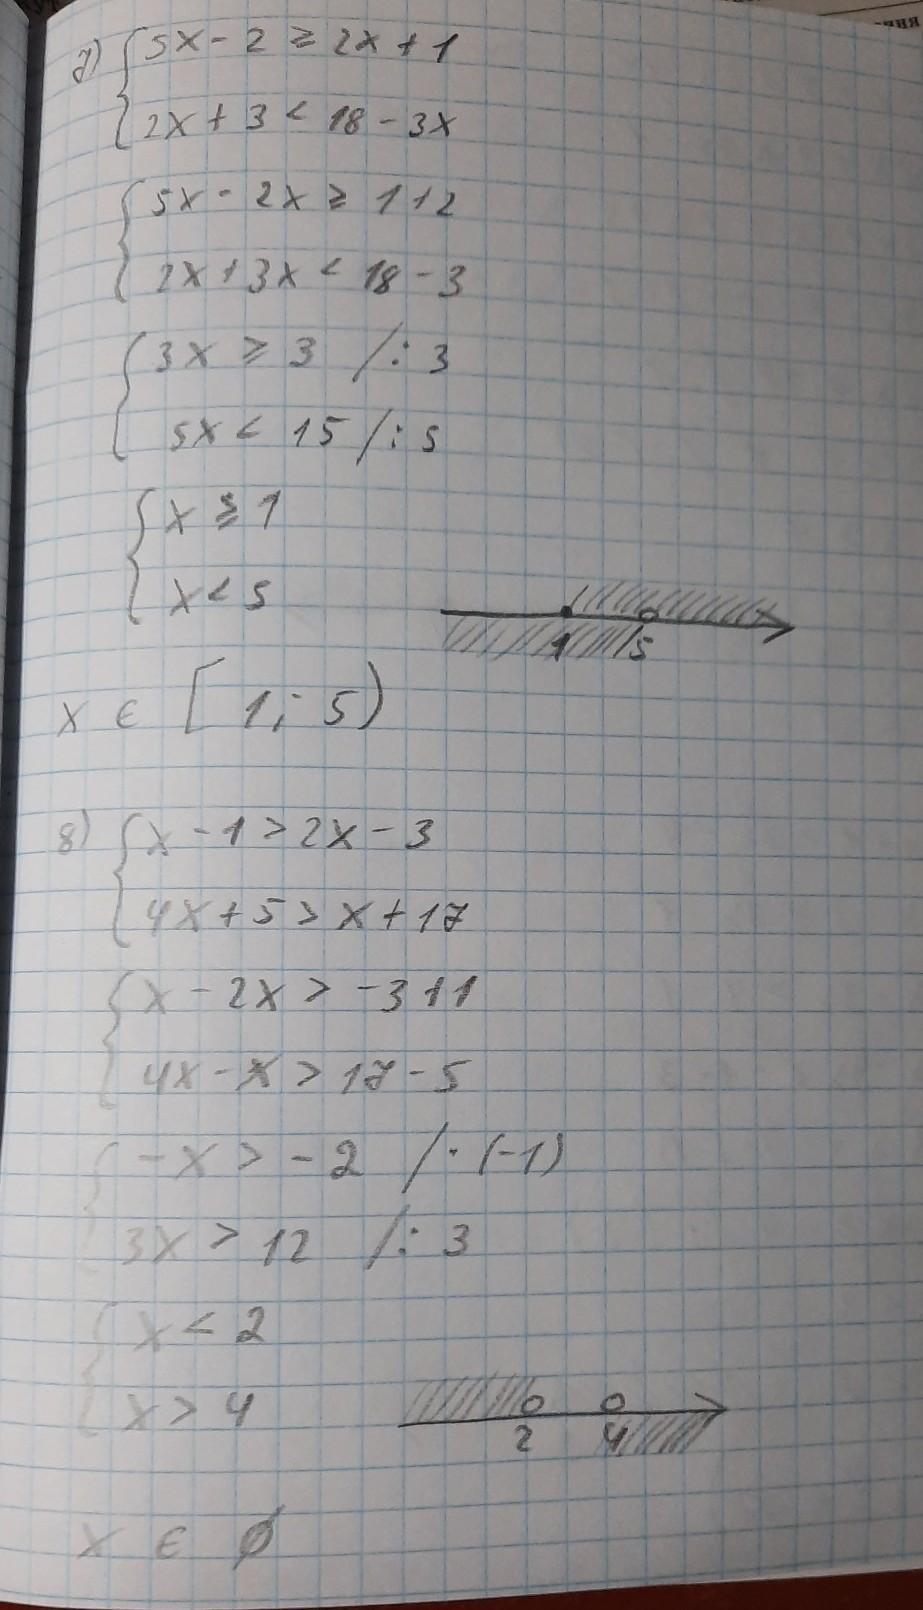 7) 5x - 2 ≥ 2x + 1
2x + 3 < 18 - 3x
5x - 2x ≥ 1 + 2
2x + 3x < 18 - 3
3x ≥ 3 /: 3
5x < 15 /: 5
x ≥ 1
x < 5
1 5
x ∈ [1; 5)
8) x - 1 > 2x - 3
4x + 5 > x + 17
x - 2x > -3 + 1
4x - x > 17 - 5
-x > -2 /· (-1)
3x > 12 /: 3
x < 2
x > 4
2 4
x ∈ ∅